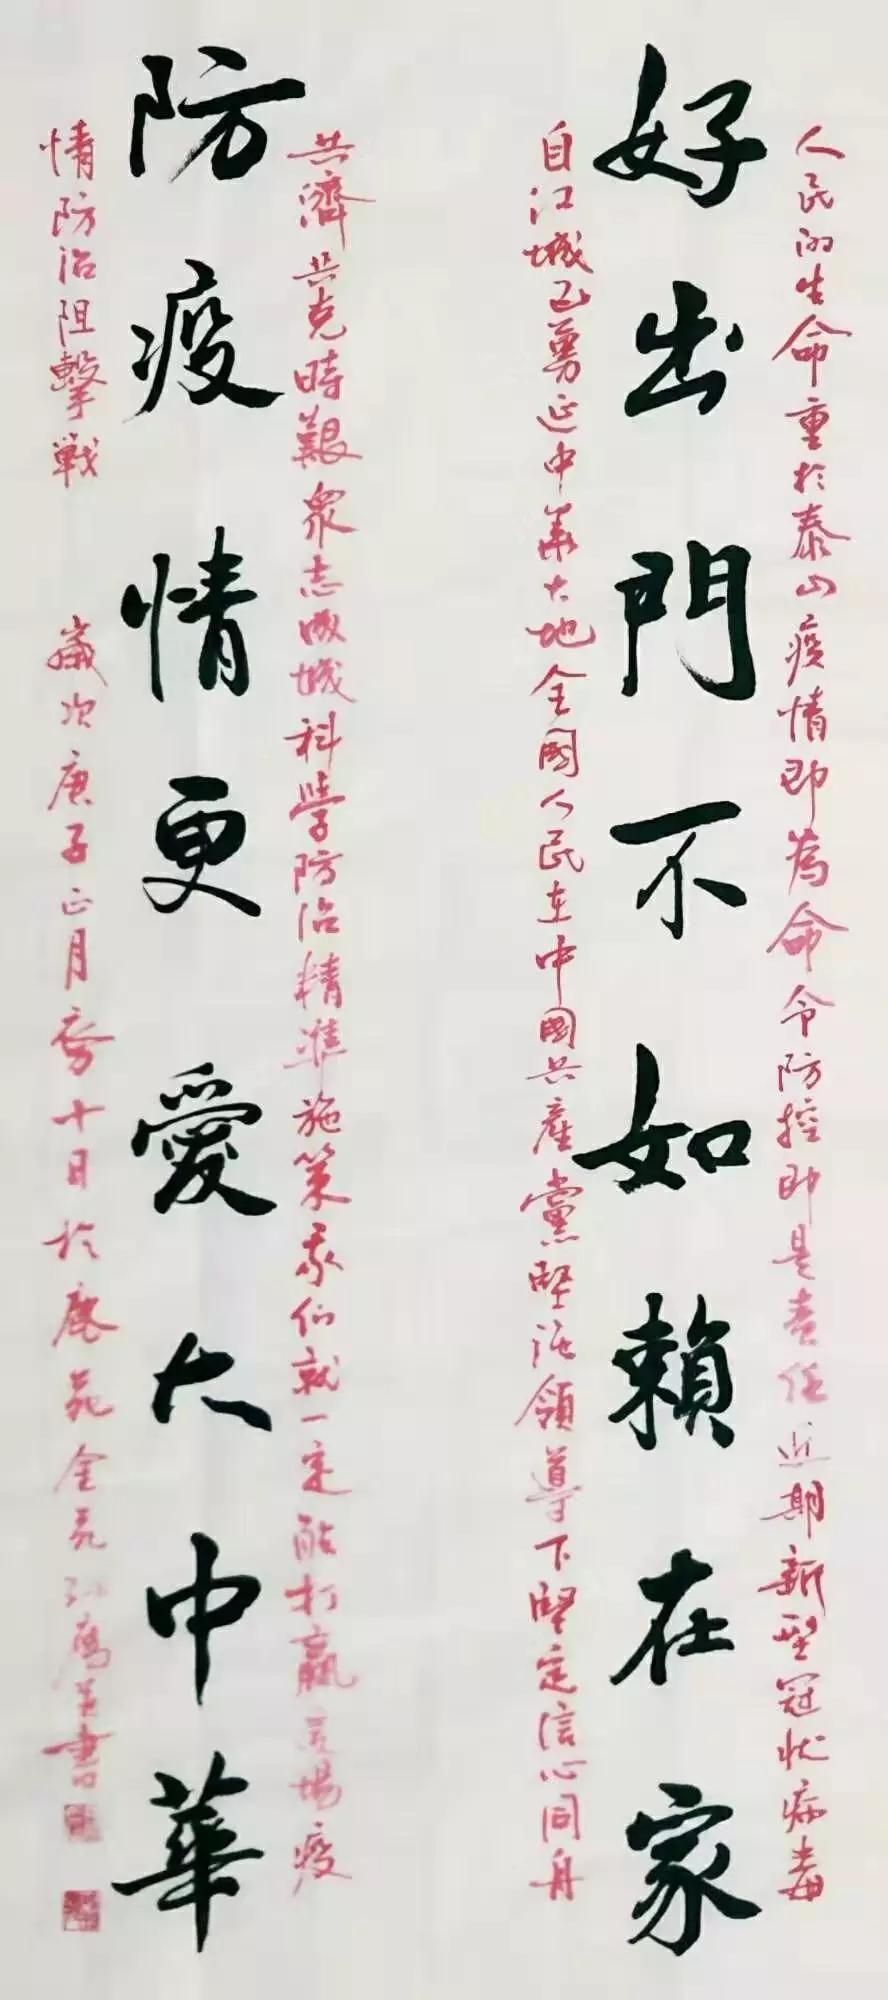 人民的生命重於泰山疫情即為命令防控即是責任近期新型冠狀病毒
好出門不如賴在家
自江城已蔓延中華大地全國人民在中國共產黨堅強領導下堅定信心同舟
共濟共克時艱眾志成城科學防治精準施策我们就一定能打贏這場疫
防疫情更愛大中華
情防治阻擊戰
歲次庚子正月初十日於鹿苑金苑
書